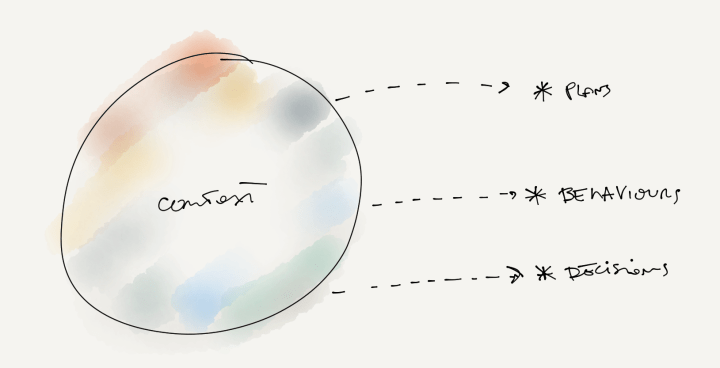 context
* PLANS
* BEHAVIOURS
* DECISIONS